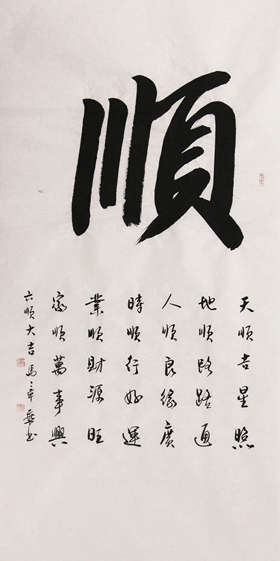 順
天順吉星照
地順路路通
人順良緣廣
時順行好運
業順財源旺
家順萬事興
六順大吉